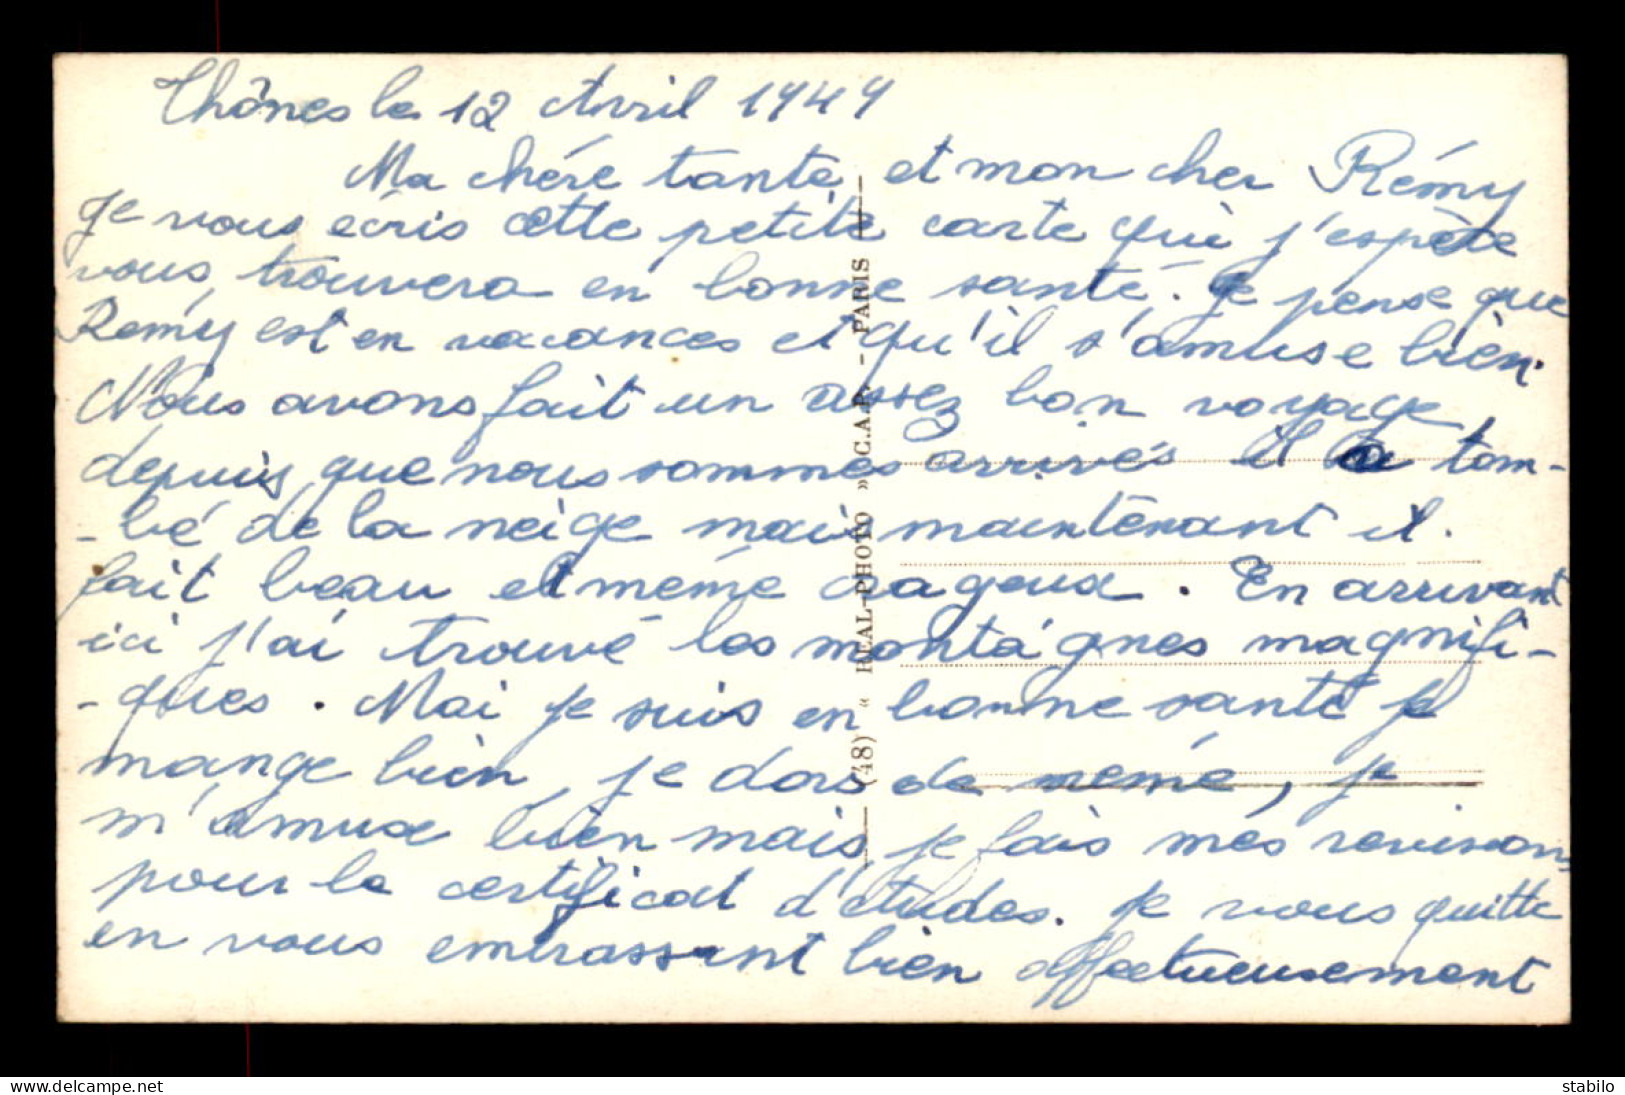 Thônes le 12 Avril 1949
Ma chére tante et mon cher Rémy
Je vous écris cette petite carte qui j'espète
vous trouvera en bonne santé. Je pense que
Remy est en vacances et qu'il s'amuse bien.
Nous avons fait un assez bon voyage
depuis que nous sommes arrivés il a tom-
-bé de la neige mais maintenant il
fait beau et même oragoux. En arrivant
ici j'ai trouvé les montagnes magnifi-
-ques. Moi je suis en bonne santé je
mange bien, je dors de même, je
m'amuse bien mais je fais mes revisions
pour le certificat d'études. Je vous quitte
en vous embrassant bien affectueusement
(48) « REAL-PHOTO » C.A.P. - PARIS
www.delcampe.net
stabilo